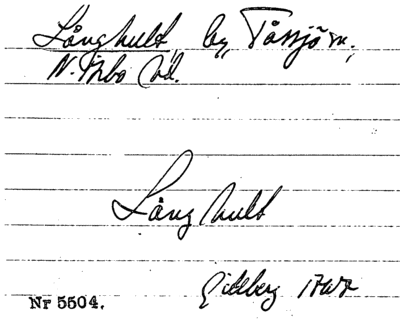 Långhult, by, Tåssjö sn.,
N. Åsbo hd.
Långhult
Gillberg
Nr 5504.